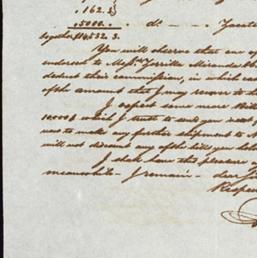 .162.3
.5000. d° Zacate
together $14,532.3.
You will observe that one of
endorser to Mess.rs Gorrille Miranda &
deduct their commission, in which ca
of the amount that I may recover to be
I expect some more Bill
10.000$ which I trust to send you
me to make any further shipment to N
will not discount any of the bills you
I shall have the pleasure
meanwhile I remain dear Si
Respec